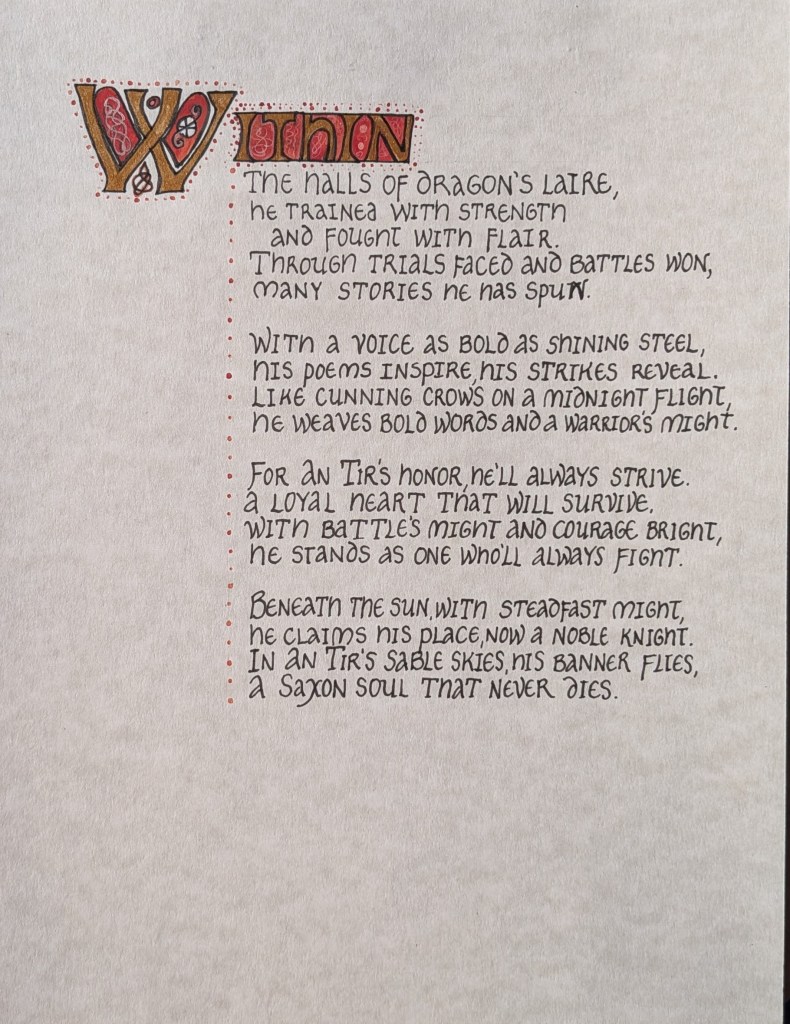 Within
The halls of Dragon's Laire,
he trained with strength
and fought with flair.
Through trials faced and battles won,
many stories he has spun.
With a voice as bold as shining steel,
his poems inspire, his strikes reveal.
Like cunning crows on a midnight flight,
he weaves bold words and a warrior's might.
For An Tir's honor, he'll always strive.
A loyal heart that will survive.
With battle's might and courage bright,
he stands as one who'll always fight.
Beneath the sun, with steadfast might,
he claims his place, now a noble knight.
In An Tir's sable skies, his banner flies,
a Saxon soul that never dies.